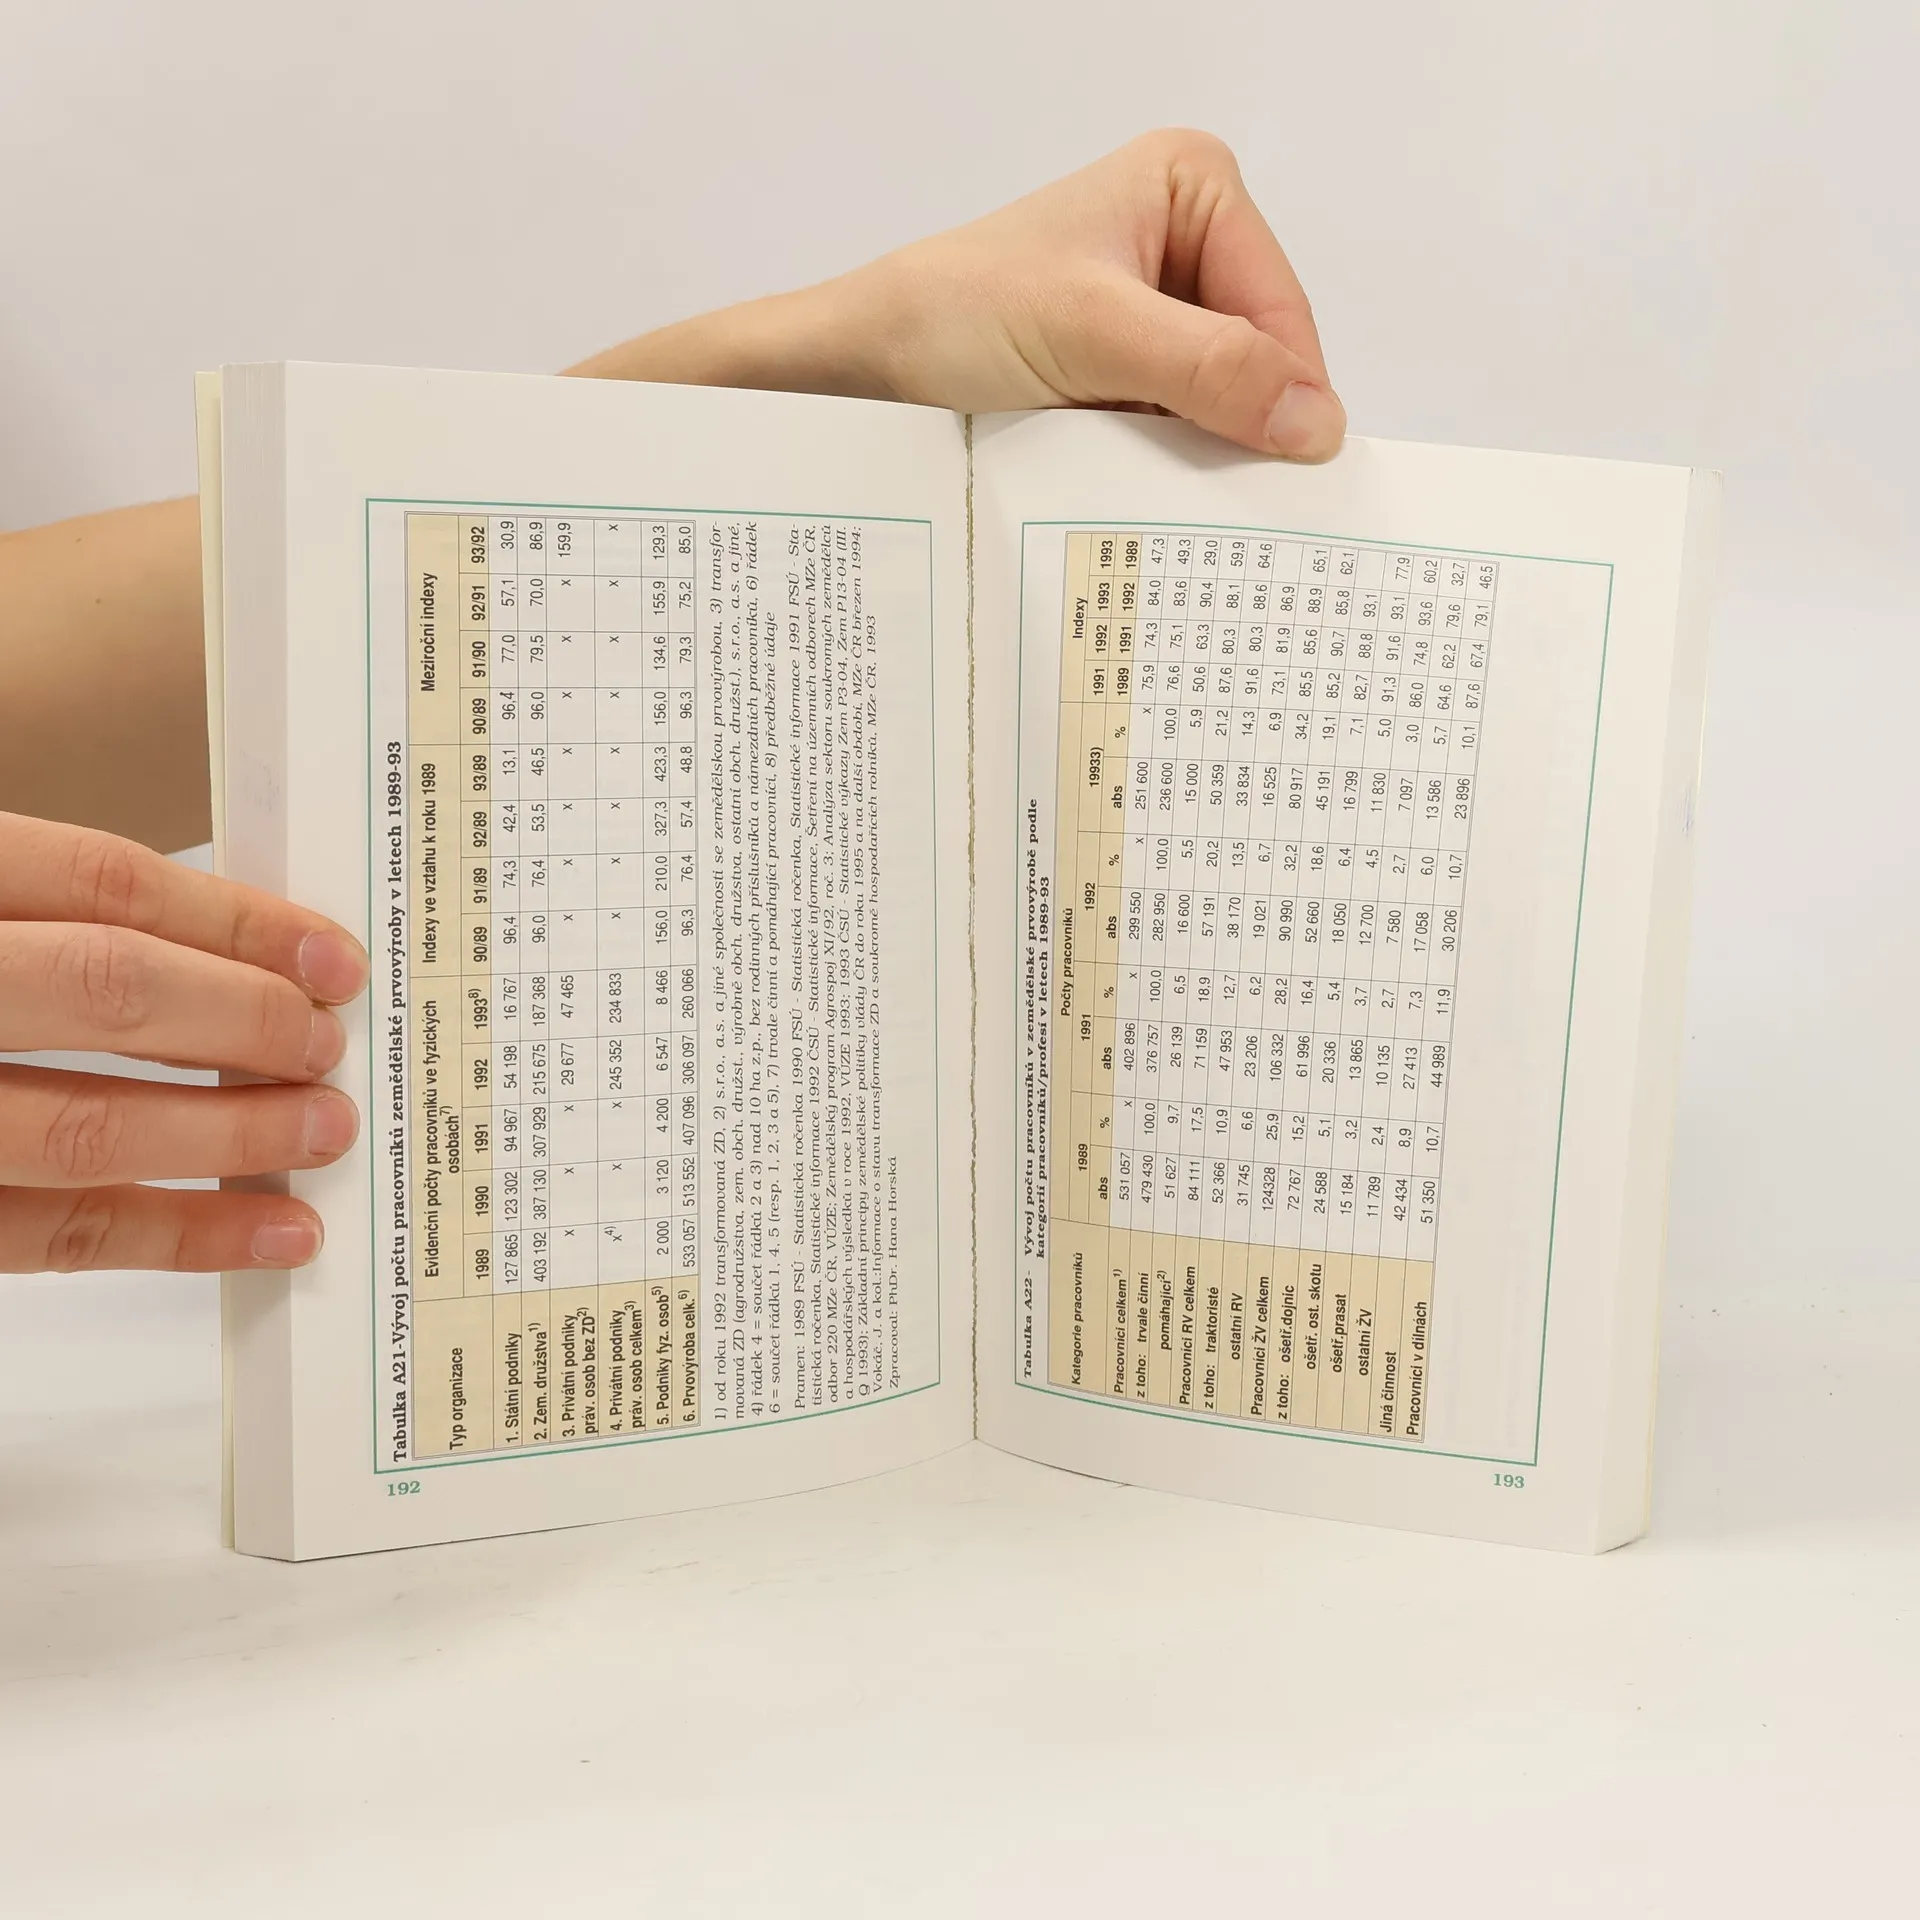 192
Tabulka A21-Vývoj počtu pracovníků zemědělské prvovýroby v letech 1989-93
Typ organizace Evidenční počty pracovníků ve fyzických osobách7) Indexy ve vztahu k roku 1989 Meziroční indexy
1989 1990 1991 1992 19938) 90/89 91/89 92/89 93/89 90/89 91/90 92/91 93/92
1. Státní podniky 127 865 123 302 94 967 54 198 16 767 96,4 74,3 42,4 13,1 96,4 77,0 57,1 30,9
2. Zem. družstva1) 403 192 387 130 307 929 215 675 187 368 96,0 76,4 53,5 46,5 96,0 79,5 70,0 86,9
3. Privátní podniky
práv. osob bez ZD2) x x x 29 677 47 465 x x x x x x x 159,9
4. Privátní podniky
práv. osob celkem3) x4) x x 245 352 234 833 x x x x x x x x
5. Podniky fyz. osob5) 2 000 3 120 4 200 6 547 8 466 156,0 210,0 327,3 423,3 156,0 134,6 155,9 129,3
6. Prvovýroba celk.6) 533 057 513 552 407 096 306 097 260 066 96,3 76,4 57,4 48,8 96,3 79,3 75,2 85,0
1) od roku 1992 transformovaná ZD, 2) s.r.o., a.s. a jiné společnosti se zemědělskou prvovýrobou, 3) transfor-
movaná ZD (agrodružstva, zem. obch. družst., výrobně obch. družstva, ostatní obch. družst.), s.r.o., a.s. a jiné,
4) řádek 4 = součet řádků 2 a 3) nad 10 ha z.p., bez rodinných příslušníků a námezdních pracovníků, 6) řádek
6 = součet řádků 1, 4, 5 (resp. 1, 2, 3 a 5), 7) trvale činní a pomáhající pracovníci, 8) předběžné údaje
Pramen: 1989 FSÚ - Statistická ročenka 1990 FSÚ - Statistická ročenka, Statistické informace 1991 FSÚ - Sta-
tistická ročenka, Statistické informace 1992 ČSÚ - Statistické informace, Šetření na územních odborech MZe ČR,
odbor 220 MZe ČR, VÚZE; Zemědělský program Agrospoj XI/92, roč. 3; Analýza sektoru soukromých zemědělců
a hospodářských výsledků v roce 1992, VÚZE 1993; 1993 ČSÚ - Statistické výkazy Zem P3-04, Zem P13-04 (III.
Q 1993); Základní principy zemědělské politiky vlády ČR do roku 1995 a na další období, MZe ČR březen 1994;
Vokáč, J. a kol.:Informace o stavu transformace ZD a soukromě hospodařících rolníků. MZe ČR, 1993
Zpracoval: PhDr. Hana Horská
Tabulka A22- Vývoj počtu pracovníků v zemědělské prvovýrobě podle
kategorií pracovníků/profesí v letech 1989-93
Kategorie pracovníků Počty pracovníků Indexy
1989 1991 1992 19933) 1991 1992 1993 1993
abs % abs % abs % abs % 1989 1991 1992 1989
Pracovníci celkem1) 531 057 x 402 896 x 299 550 x 251 600 x 75,9 74,3 84,0 47,3
z toho: trvale činní 479 430 100,0 376 757 100,0 282 950 100,0 236 600 100,0 76,6 75,1 83,6 49,3
pomáhající2) 51 627 9,7 26 139 6,5 16 600 5,5 15 000 5,9 50,6 63,3 90,4 29,0
Pracovníci RV celkem 84 111 17,5 71 159 18,9 57 191 20,2 50 359 21,2 87,6 80,3 88,1 59,9
z toho: traktoristé 52 366 10,9 47 953 12,7 38 170 13,5 33 834 14,3 91,6 80,3 88,6 64,6
ostatní RV 31 745 6,6 23 206 6,2 19 021 6,7 16 525 6,9 73,1 81,9 86,9
Pracovníci ŽV celkem 124328 25,9 106 332 28,2 90 990 32,2 80 917 34,2 85,5 85,6 88,9 65,1
z toho: ošetř.dojnic 72 767 15,2 61 996 16,4 52 660 18,6 45 191 19,1 85,2 90,7 85,8 62,1
ošetř. ost. skotu 24 588 5,1 20 336 5,4 18 050 6,4 16 799 7,1 82,7 88,8 93,1
ošetř.prasat 15 184 3,2 13 865 3,7 12 700 4,5 11 830 5,0 91,3 91,6 93,1 77,9
ostatní ŽV 11 789 2,4 10 135 2,7 7 580 2,7 7 097 3,0 86,0 74,8 93,6 60,2
Jiná činnost 42 434 8,9 27 413 7,3 17 058 6,0 13 586 5,7 64,6 62,2 79,6 32,7
Pracovníci v dílnách 51 350 10,7 44 989 11,9 30 206 10,7 23 896 10,1 87,6 67,4 79,1 46,5
193